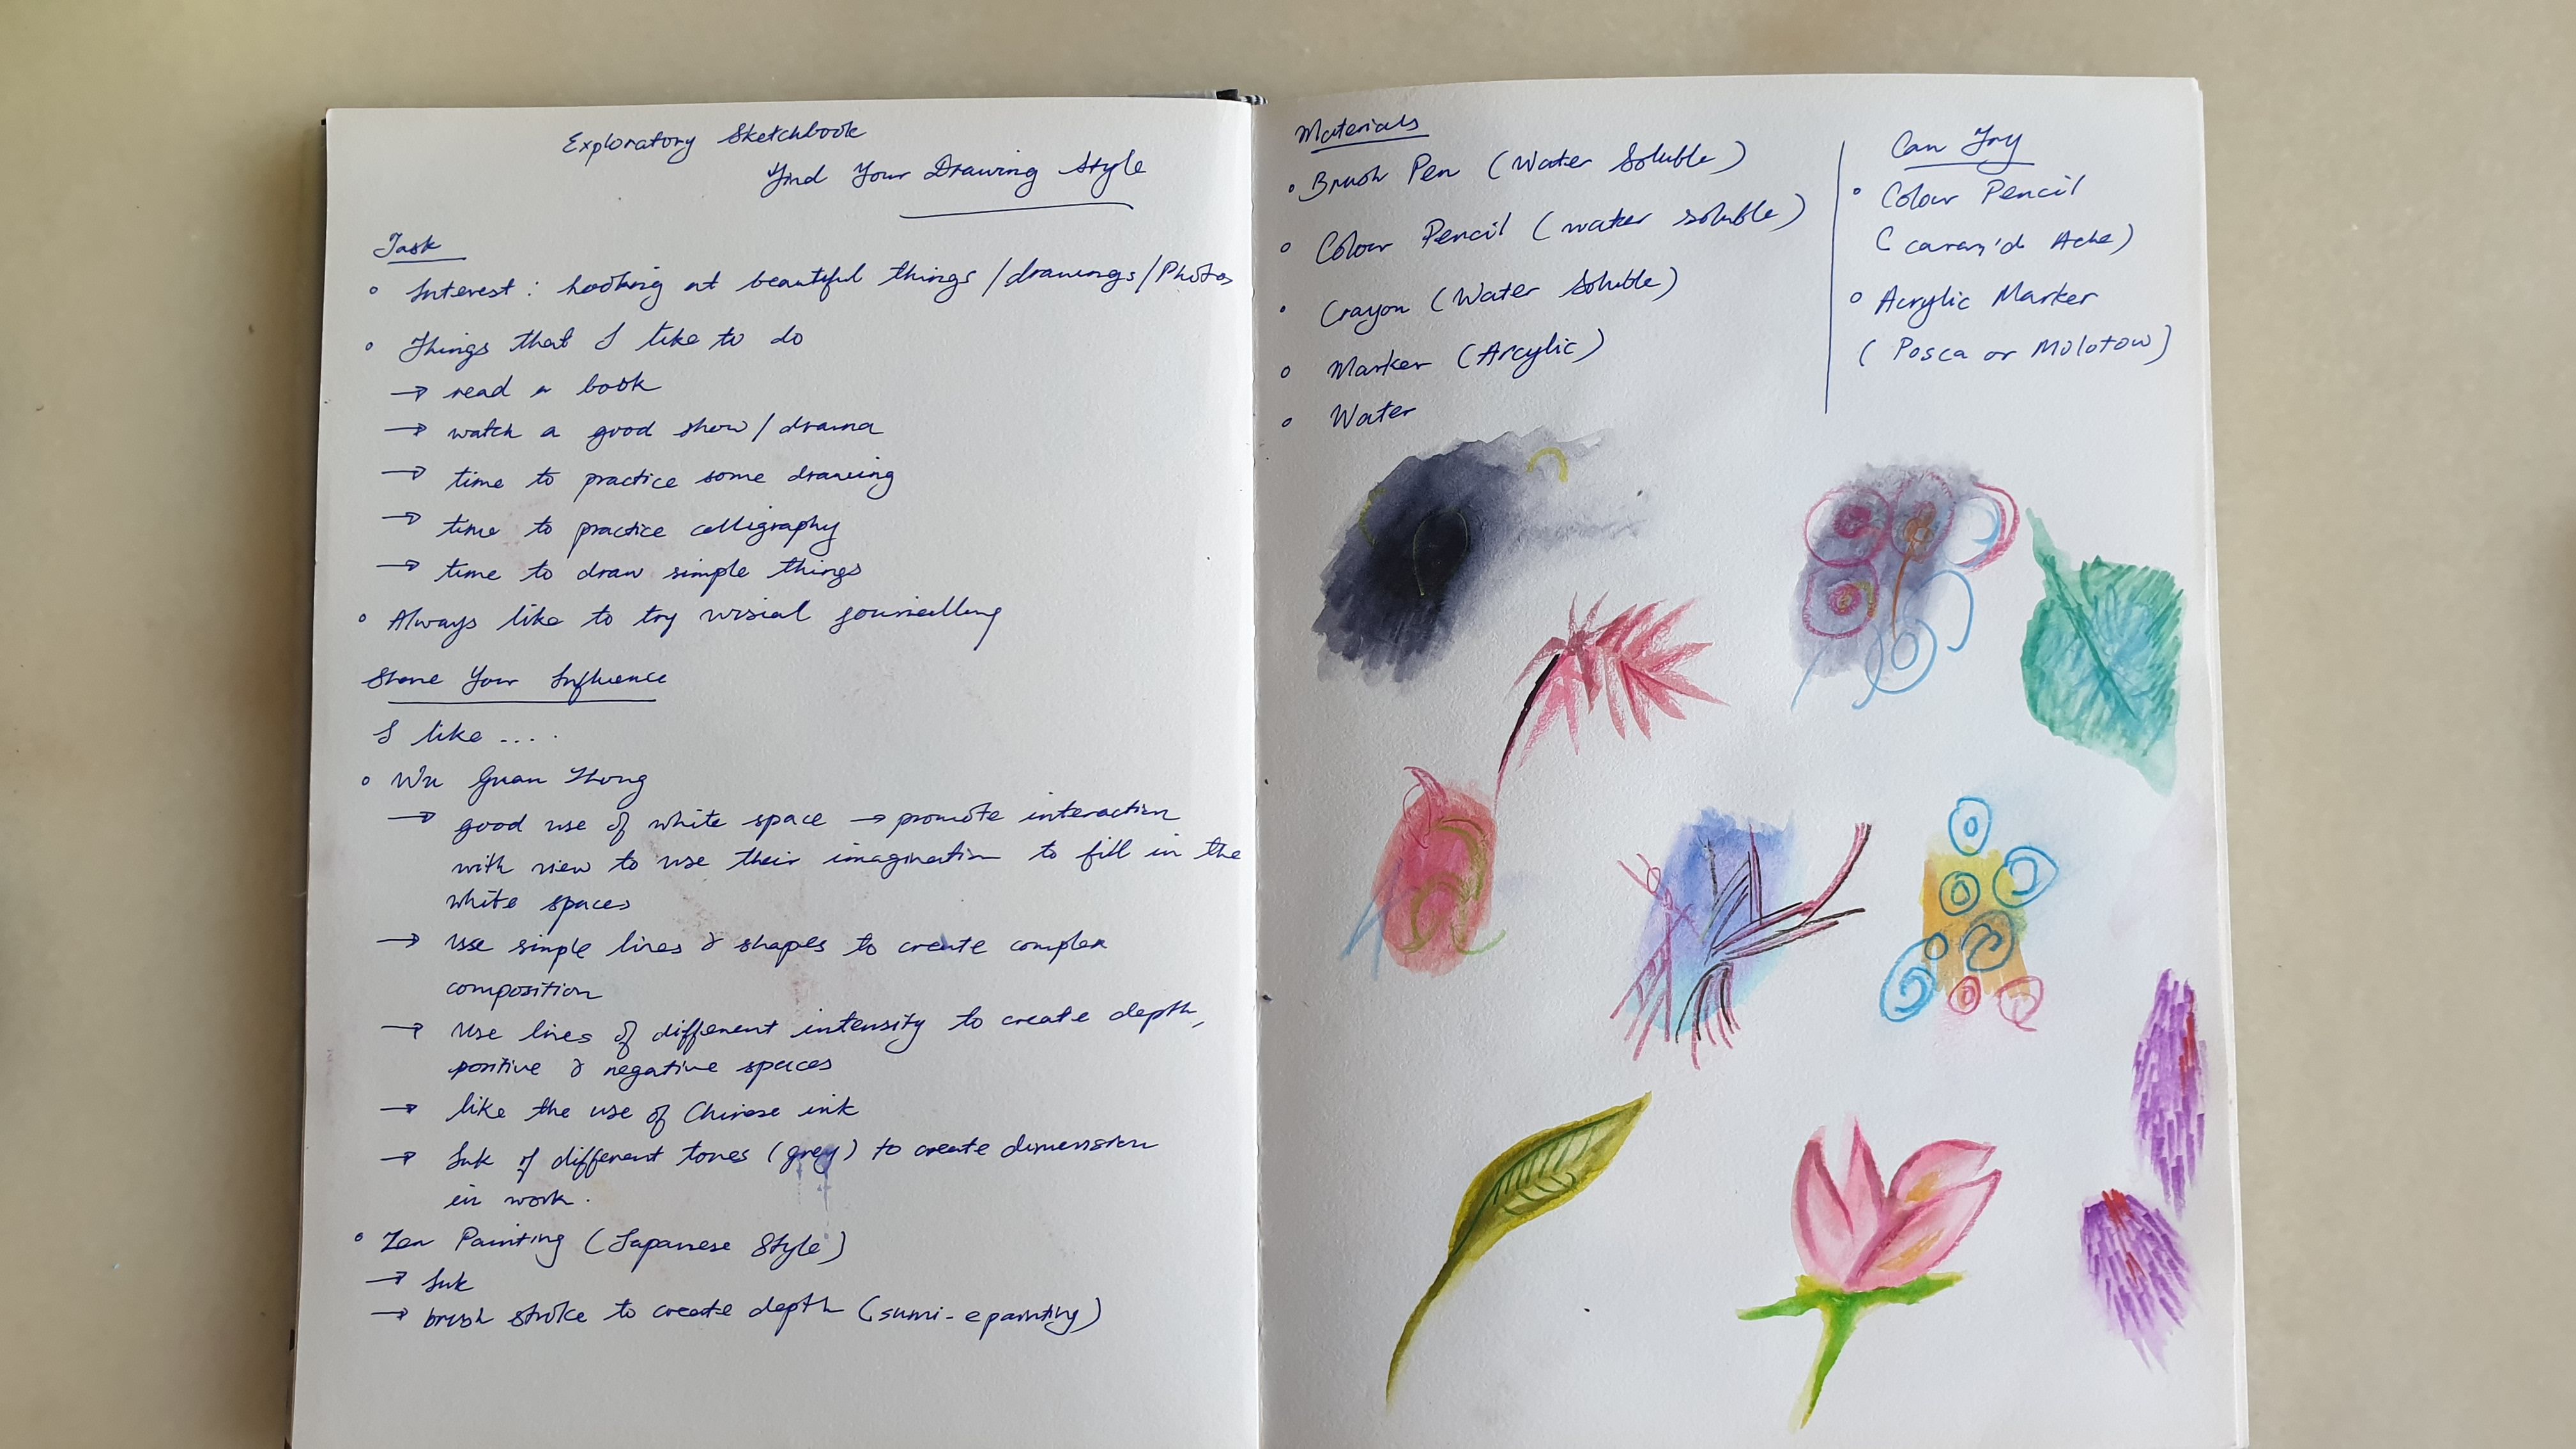 Exploratory Sketchbook
Find Your Drawing Style
Task
• Interest: Looking at beautiful things / drawings / Photos
• Things that I like to do
→ read a book
→ watch a good show / drama
→ time to practice some drawing
→ time to practice calligraphy
→ time to draw simple things
• Always like to try visial journalling
Share Your Influence
I like ....
• Wu Guan Zhong
→ good use of white space → promote interaction
with view to use their imagination to fill in the
white spaces
→ use simple lines & shapes to create complex
composition
→ Use lines of different intensity to create depth,
positive & negative spaces
→ like the use of Chinese ink
→ Ink of different tones (grey) to create dimension
in work.
• Zen Painting (Japanese Style)
→ Ink
→ brush stroke to create depth (sumi-e painting)
Materials
• Brush Pen (Water Soluble)
• Colour Pencil (water soluble)
• Crayon (Water Soluble)
• Marker (Arcylic)
• Water
Can Try
• Colour Pencil
(caran'd Ache)
• Acrylic Marker
(Posca or Molotow)